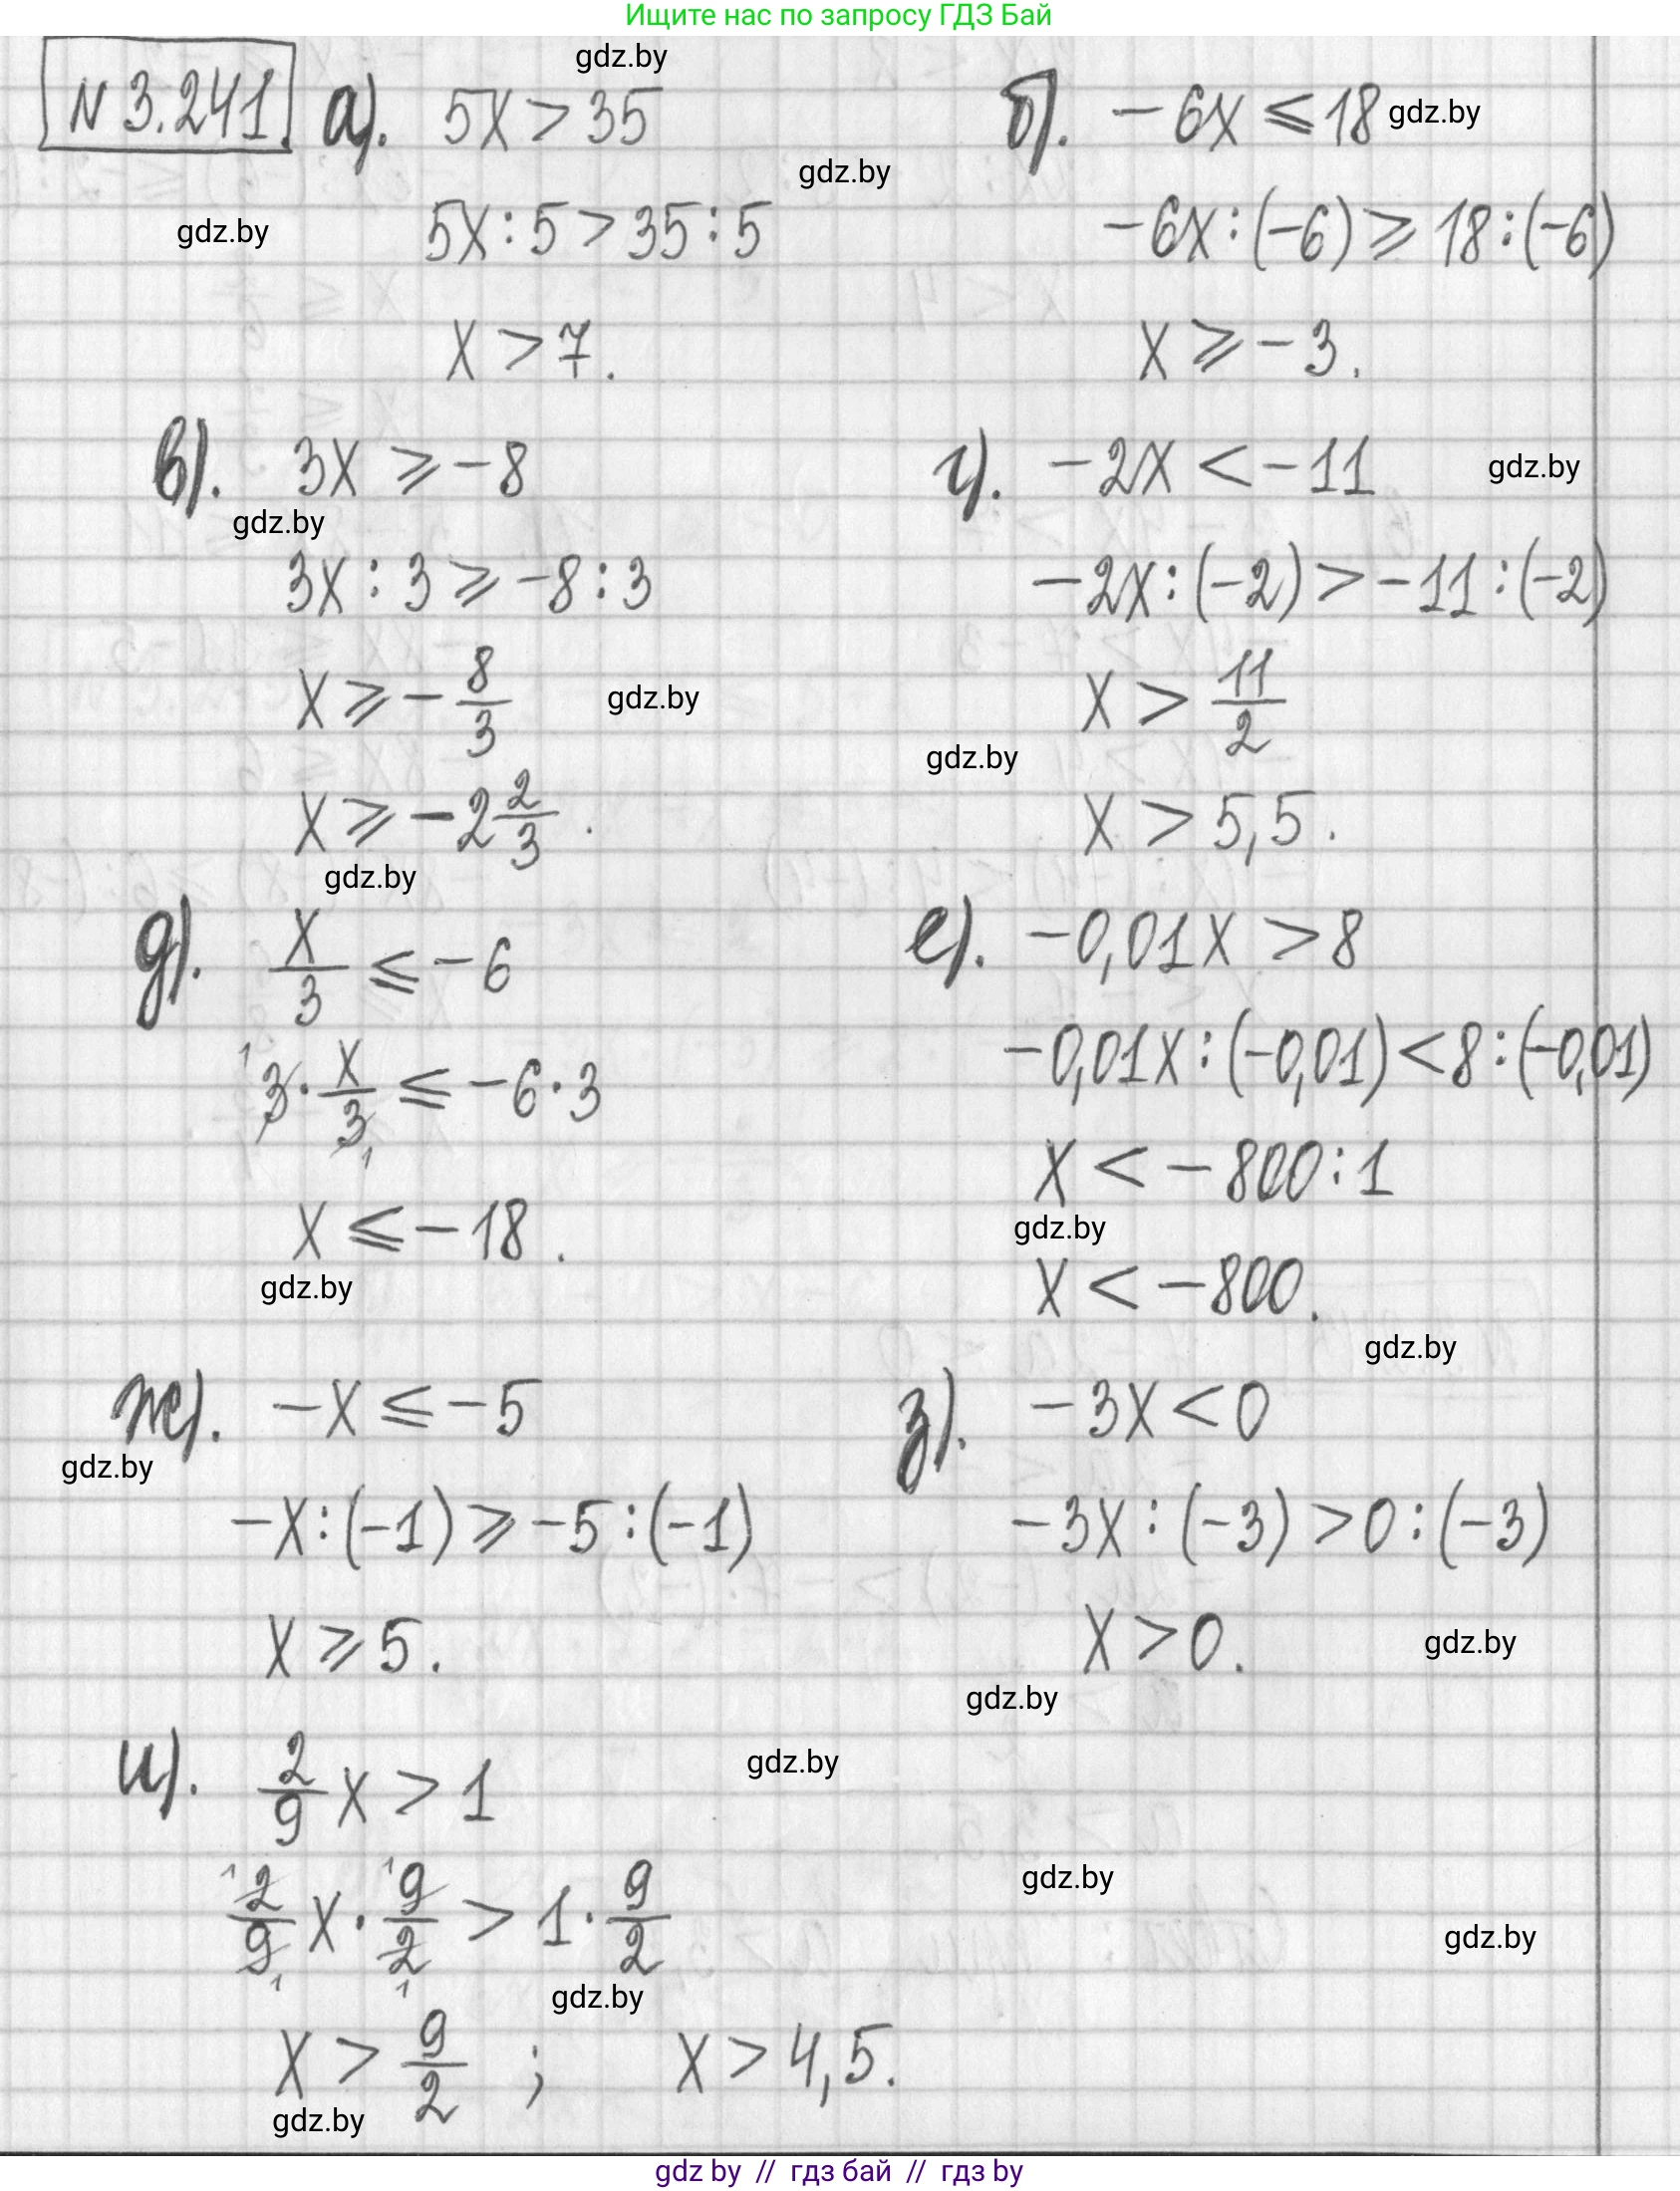 Ищите нас по запросу ГДЗ Бай
gdz.by
N 3.241. а). 5x > 35
б). -6x ⩽ 18 gdz.by
gdz.by
gdz.by
5x : 5 > 35 : 5
-6x : (-6) ⩾ 18 : (-6)
x > 7.
x ⩾ -3.
в). 3x ⩾ -8
г). -2x < -11 gdz.by
gdz.by
3x : 3 ⩾ -8 : 3
-2x : (-2) > -11 : (-2)
x ⩾ -8/3 gdz.by
x > 11/2
gdz.by
x ⩾ -2 2/3.
x > 5,5.
gdz.by
д). x/3 ⩽ -6
е). -0,01x > 8
1 3 · x/3 1 ⩽ -6 · 3
-0,01x : (-0,01) < 8 : (-0,01)
x ⩽ -18.
x < -800 : 1
gdz.by
gdz.by
x < -800.
gdz.by
ж). -x ⩽ -5
з). -3x < 0
gdz.by
-x : (-1) ⩾ -5 : (-1)
-3x : (-3) > 0 : (-3)
x ⩾ 5.
x > 0. gdz.by
gdz.by
и). 2/9 x > 1 gdz.by
1 2/9 1 x · 1 9/2 1 > 1 · 9/2
gdz.by
gdz.by
gdz.by
x > 9/2 ; x > 4,5.
gdz.by
gdz by // гдз бай // гдз by